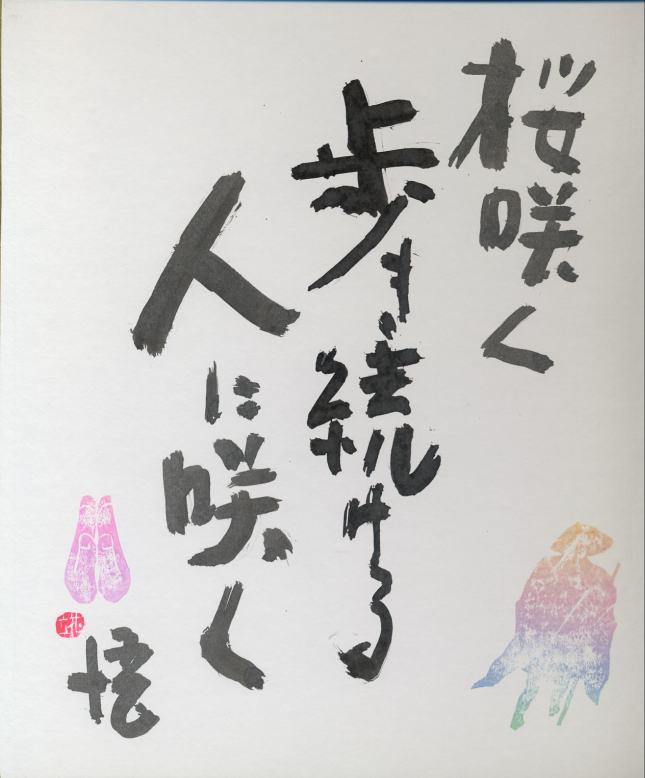 桜咲く
歩き続ける
人に咲く